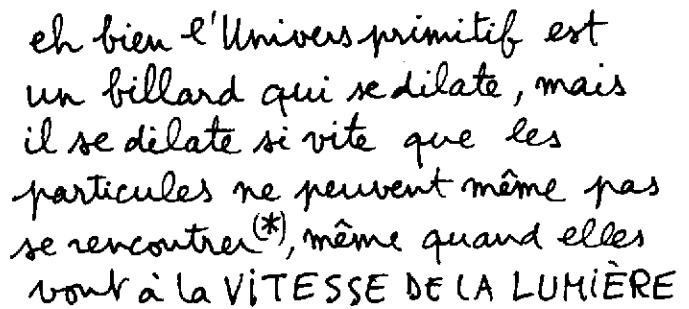 eh bien l'Univers primitif est
un billard qui se dilate, mais
il se dilate si vite que les
particules ne peuvent même pas
se rencontrer(*), même quand elles
vont à la VITESSE DE LA LUMIÈRE